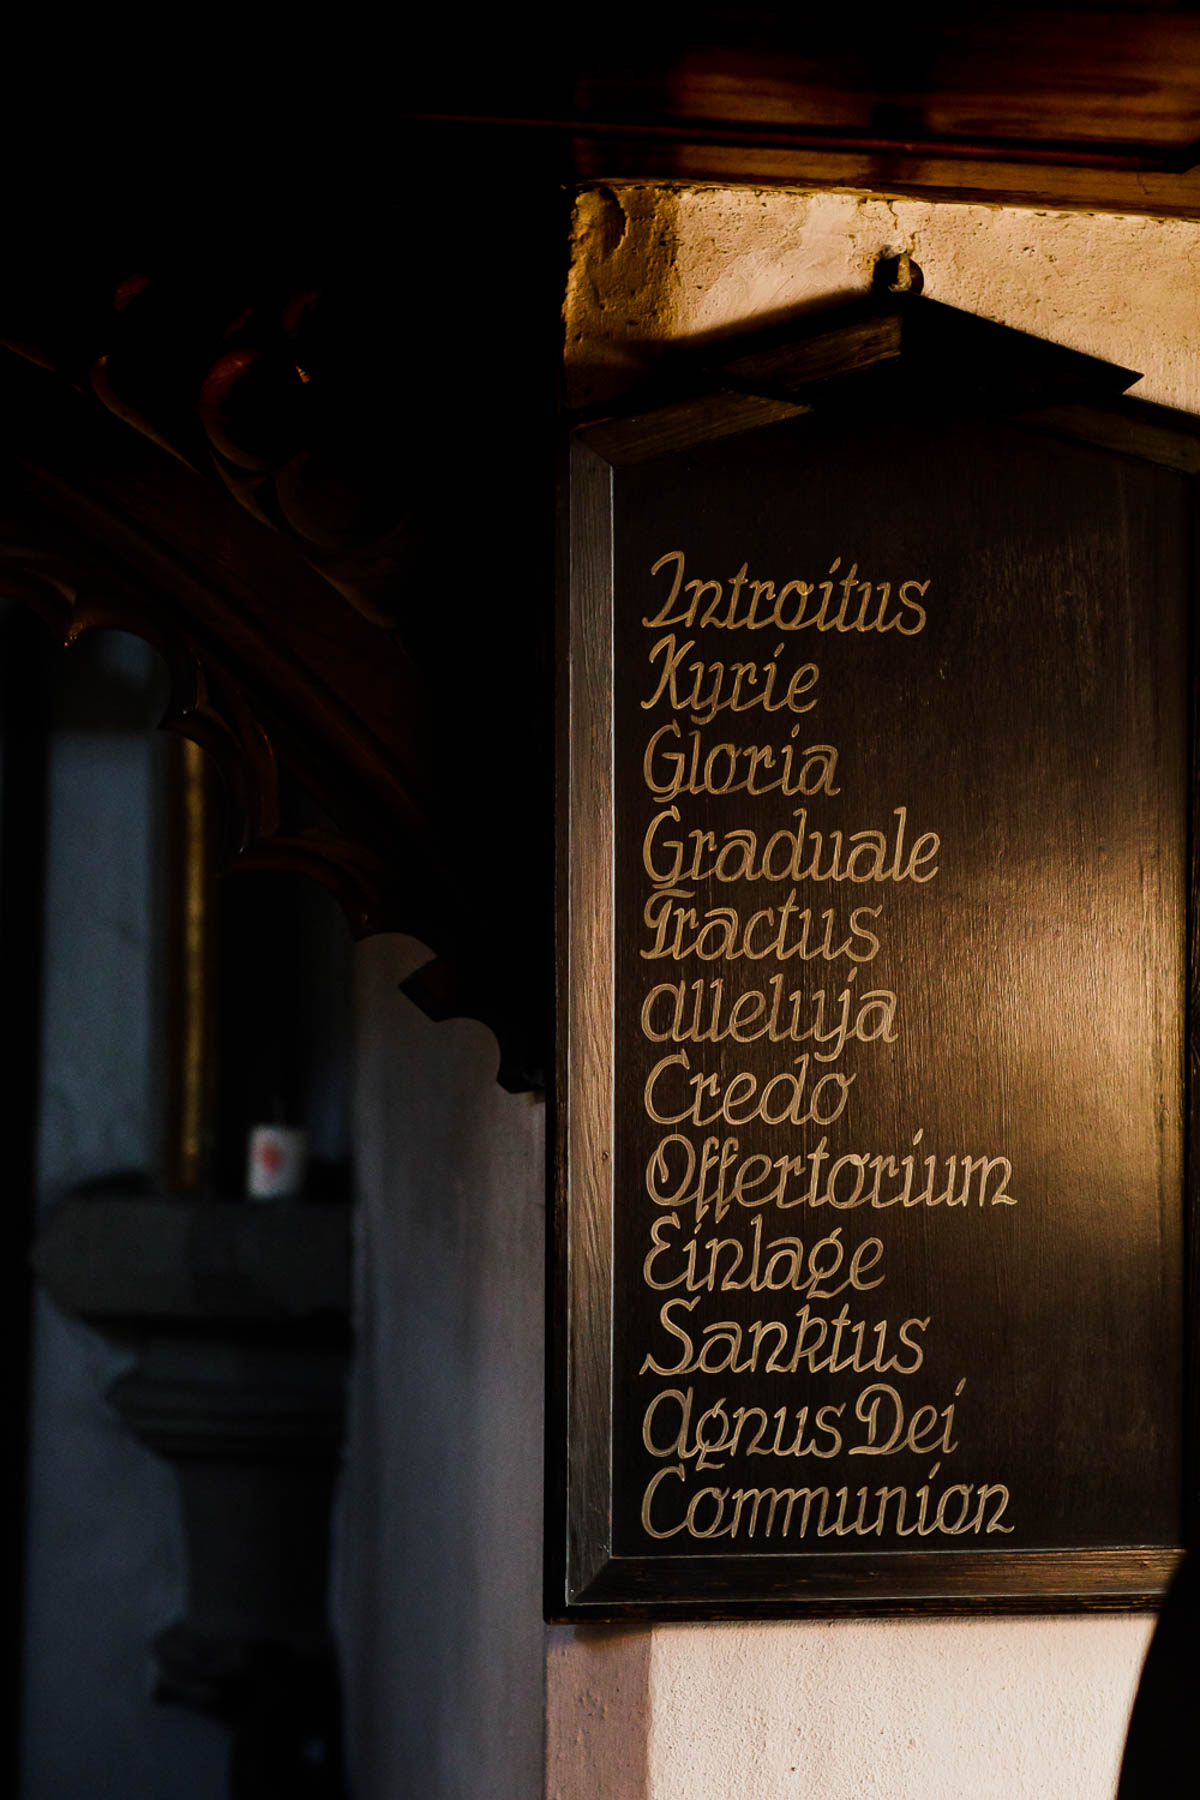 Introitus
Kyrie
Gloria
Graduale
Tractus
alleluja
Credo
Offertorium
Einlage
Sanktus
Agnus Dei
Communion